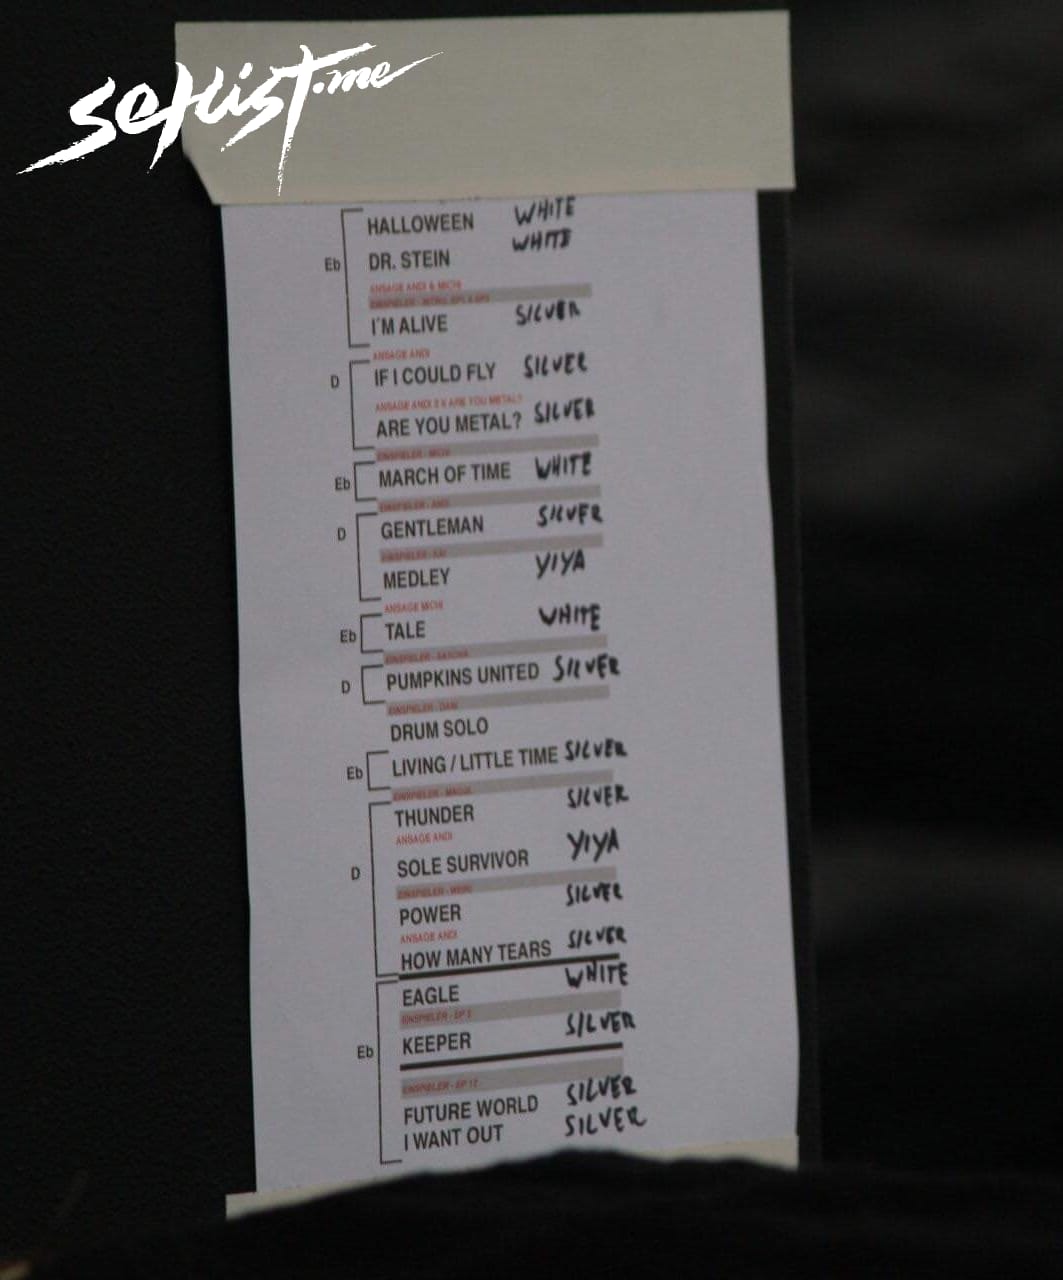 setlist.me
HALLOWEEN WHITE
DR. STEIN WHITE
ANSAGE ANDI & MICHI
EINSPIELER - INTRO,
Eb
I'M ALIVE SILVER
ANSAGE ANDI
D IF I COULD FLY SILVER
ANSAGE ANDI 3 X ARE YOU METAL?
ARE YOU METAL? SILVER
EINSPIELER -
Eb MARCH OF TIME WHITE
EINSPIELER - ANDI
D GENTLEMAN SILVER
EINSPIELER - KAI
MEDLEY YIYA
ANSAGE MICHI
Eb TALE WHITE
EINSPIELER - SASCHA
D PUMPKINS UNITED SILVER
EINSPIELER - DANI
DRUM SOLO
Eb LIVING / LITTLE TIME SILVER
EINSPIELER - MARKUS
THUNDER SILVER
ANSAGE ANDI
D SOLE SURVIVOR YIYA
EINSPIELER - WEIKI
POWER SILVER
ANSAGE ANDI
HOW MANY TEARS SILVER
EAGLE WHITE
EINSPIELER - EP 5
Eb KEEPER SILVER
EINSPIELER - EP 12
FUTURE WORLD SILVER
I WANT OUT SILVER